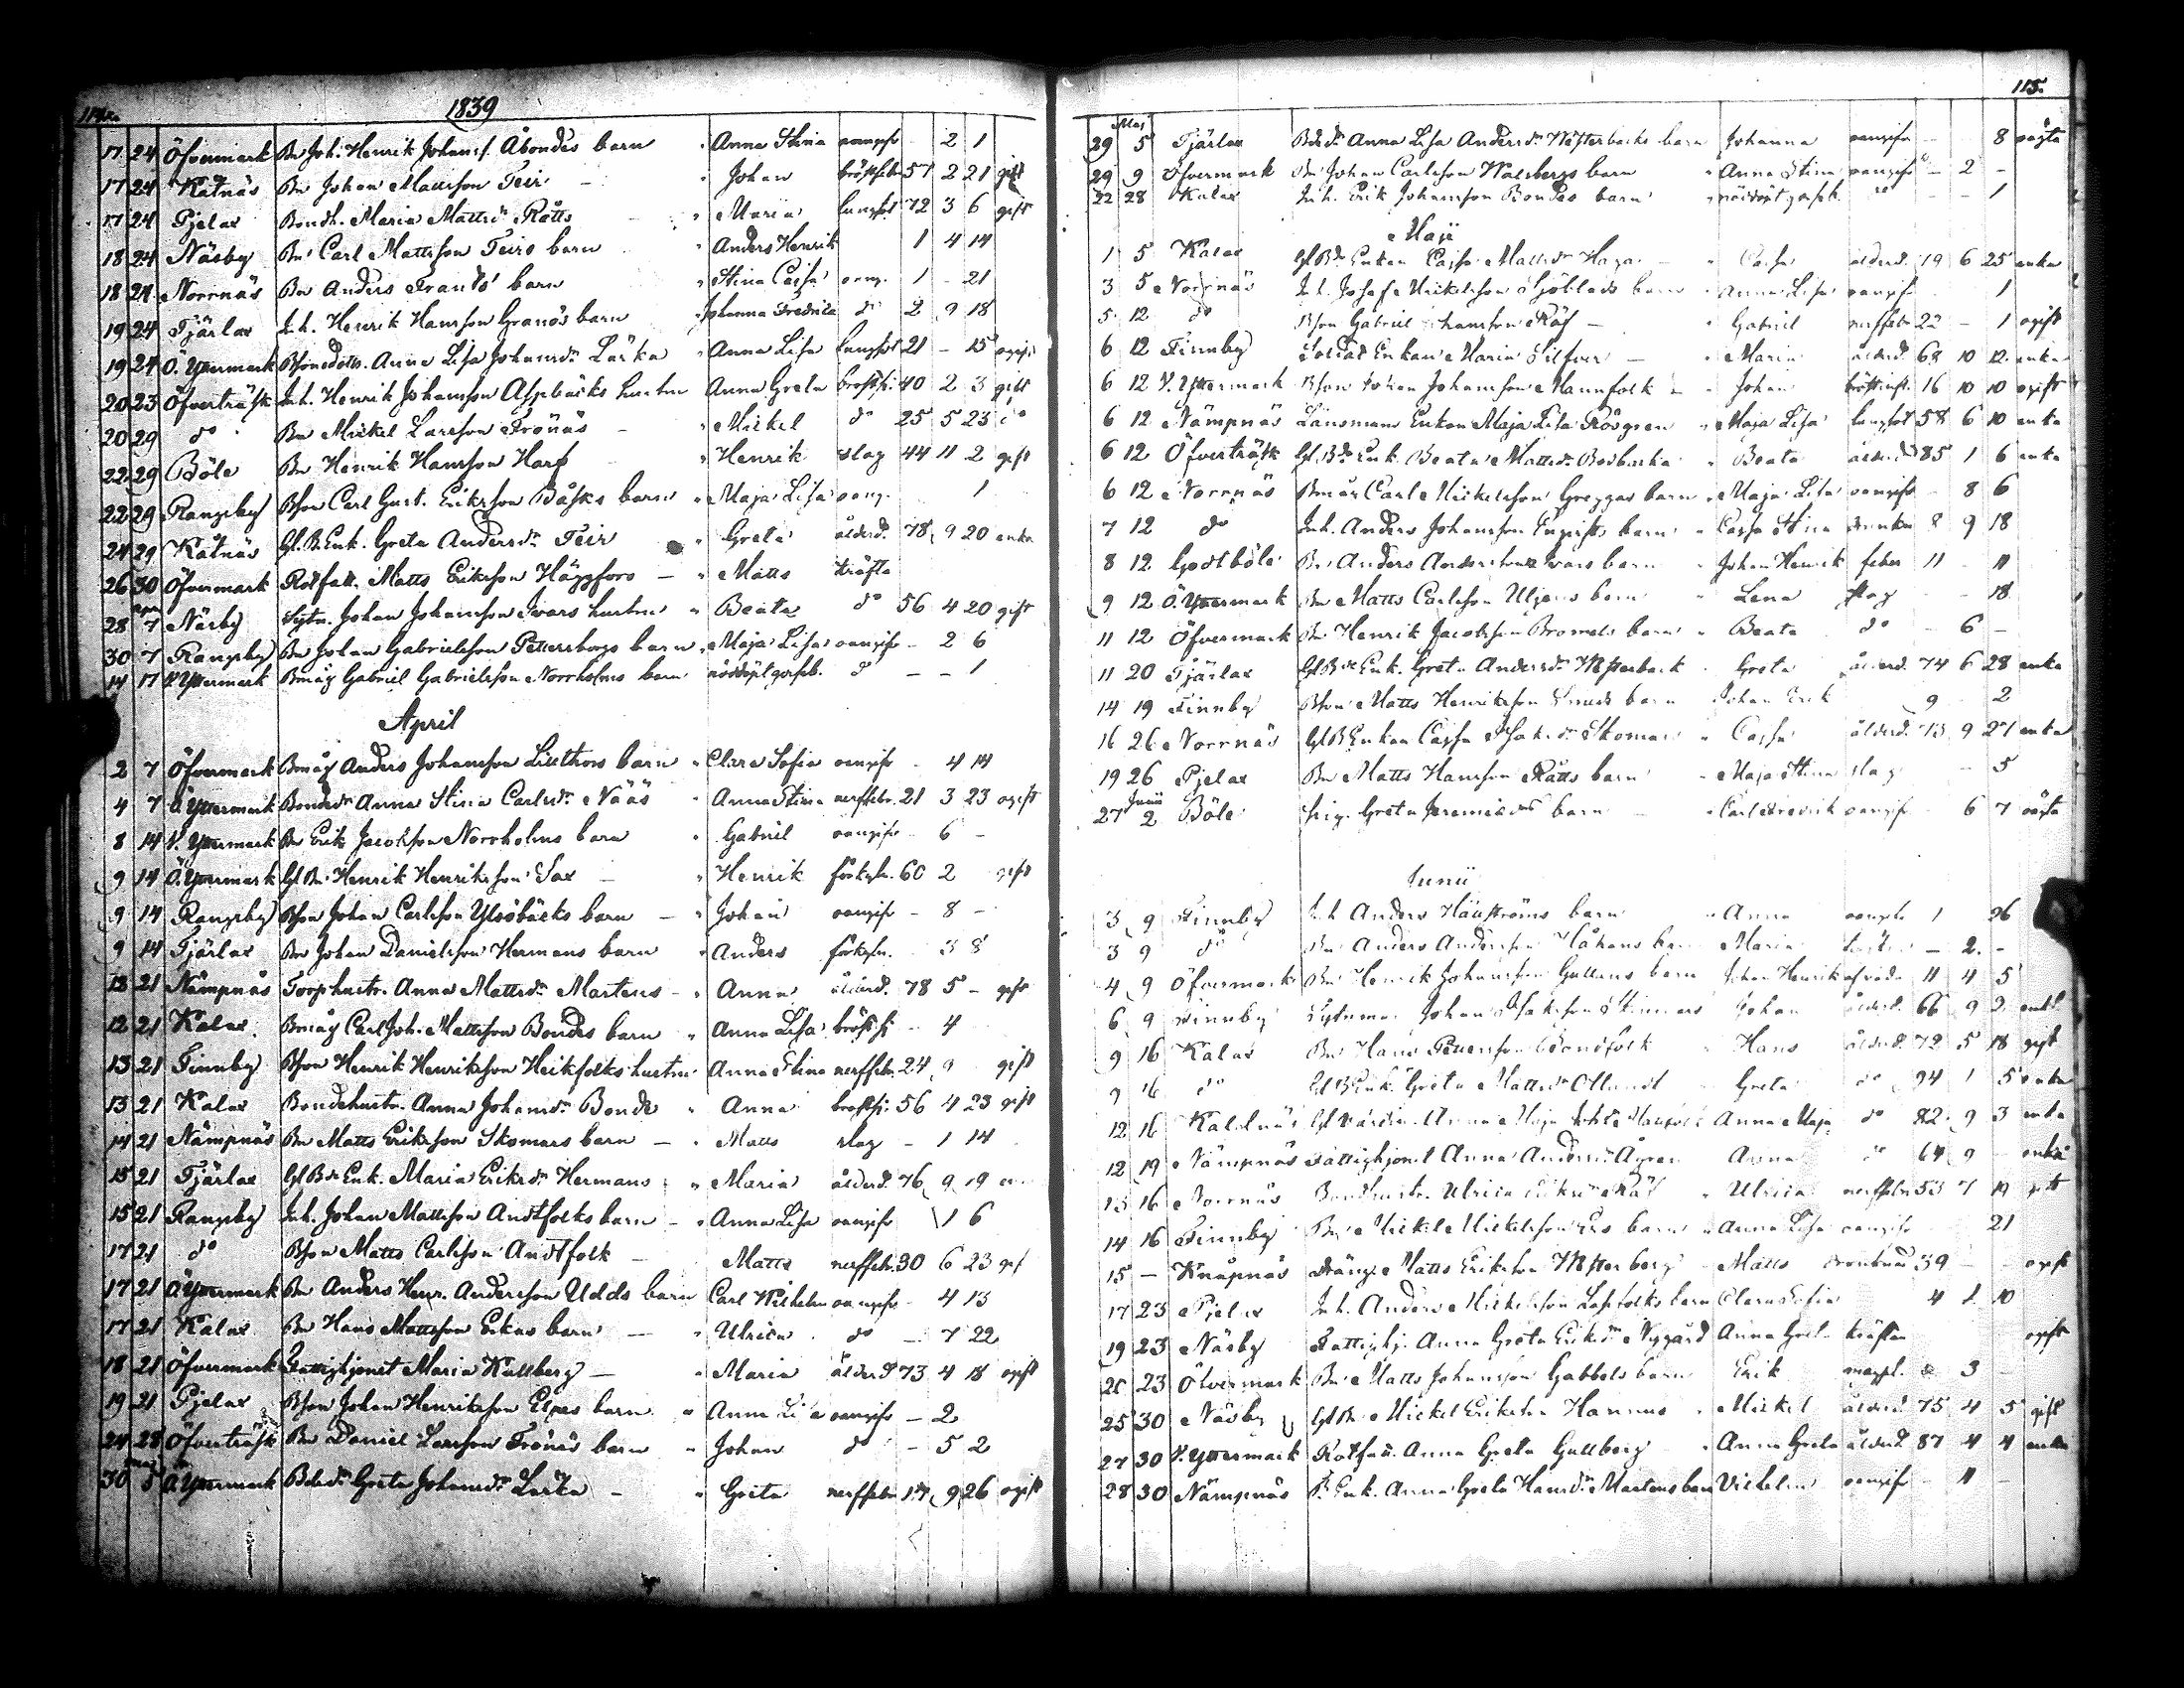 114.
1839
17 24 Öfvermark Bn Joh. Henrik Johanss. Åbondes barn " Anna Stina oangifv - 2 1
17 24 Kåtnäs Bn Johan Mattsson Teir - " Johan bröstfebr 57 2 21 gift
17 24 Pjelax Bondh. Maria Mattsdr Rätts " Maria lungsot 72 3 6 gift
18 24 Näsby Bn Carl Mattsson Teirs barn " Anders Henrik 1 4 14
18 24 Norrnäs Bn Anders Frants barn " Stina Cajsa oang. 1 - 21
19 24 Tjärlax Inh. Henrik Hansson Granös barn Johanna Fredrika do 2 9 18
19 24 Ö. Yttermark Bsonedottr. Anna Lisa Johansdr Lärka " Anna Lisa lungsot 21 - 15 ogift
20 23 Öfverträsk Inh. Henrik Johansson Aspbäcks hustru Anna Greta bröstfr. 40 2 3 gift
20 29 do Bn Mickel Larsson Frönäs - " Mickel do 25 5 23 do
22 29 Böle Bn Henrik Hansson Harf - " Henrik slag 44 11 2 gift
22 29 Rangsby Bson Carl Gust. Eriksson Båsks barn " Maja Lisa oang. 1
24 29 Kåtnäs Gl. B. Enk. Greta Andersdr Teir " Greta ålderd. 78 9 20 enka
26 30 Öfvermark Rotfatt. Matts Eriksson Häggfors - " Matts kräfta
28 Apr 7 Näsby Sytn. Johan Johansson Ivars hustru " Beata do 56 4 20 gift
30 7 Rangsby Bn Johan Gabrielsson Pettersborgs barn " Maja Lisa oangifv - 2 6
14 17 V. Yttermark Bmåg Gabriel Gabrielsson Norrholms barn nöddöpt gosseb. do - - 1
April
2 7 Öfvermark Bmåg Anders Johansson Lillthors barn " Clara Sofia oangifv - 4 14
4 7 Ö. Yttermark Bondedr Anna Stina Carlsdr Nääs " Anna Stina nerffebr. 21 3 23 ogift
8 14 V. Yttermark Bn Erik Jacobsson Norrholms barn " Gabriel oangifv - 6 -
9 14 Ö. Yttermark Gl Bn Henrik Henriksson Sax - " Henrik förkyln. 60 2 gift
9 14 Rangsby Bson Johan Carlsson Ylsöbäcks barn - " Johan oangifv - 8 -
9 14 Tjärlax Bn Johan Danielsson Hermans barn " Anders förkyln. 3 8
18 21 Nämpnäs Torphustr. Anna Mattsdr Martens - " Anna ålderd. 78 5 - gift
12 21 Kalax Bmåg Carl Joh. Mattsson Bondes barn " Anna Lisa bröstfr - 4
13 21 Finnby Bson Henrik Henriksson Heikfolks hustru Anna Stina nerffebr. 24 9 gift
13 21 Kalax Bondehustr. Anna Johansdr Bonde " Anna bröstfr. 56 4 23 gift
14 21 Nämpnäs Bn Matts Eriksson Skomars barn - " Matts slag - 1 14
15 21 Tjärlax Gl Bde Enk. Maria Eriksdr Hermans " Maria ålderd. 76 9 19 en
15 21 Rangsby Inh. Johan Mattsson Andtfolks barn - " Anna Lisa oangifv 1 6
17 21 do Bson Matts Carlsson Andtfolk - Matts nerffebr. 30 6 23 gift
17 21 Ö. Yttermark Bn Anders Henr. Andersson Udds barn Carl Wilhelm oangifv - 4 13
17 21 Kalax Bn Hans Mattsson Erkas barn - " Ulrica do - 7 22
18 21 Öfvermark Fattighjonet Maria Kullberg - " Maria ålderd 73 4 18 ogift
19 21 Pjelax Bson Johan Henriksson Elges barn " Anna Lisa oangifv - 2
24 28 Öfverträsk Bn Daniel Larsson Frönäs barn " Johan do - 5 2
30 Maj 5 Ö. Yttermark Bdedr Greta Johansdr Lärka - " Greta nerffebr 17 9 26 ogift
115.
Maj
29 5 Tjärlax Bdedr Anna Lisa Andersdr Westerbacks barn Johanna oangifv - 8 oägta
29 9 Öfvermark Bn Johan Carlsson Kalsbergs barn " Anna Stina oangifv - 2 -
22 28 Kalax Inh. Erik Johansson Bondes barn " nöddöpt gosseb. do - - 1
Maji
1 5 Kalax Gl Bde Enkan Cajsa Mattsdr Haga - " Cajsa ålderd. 79 6 25 enka
3 5 Norrnäs Inh. Josef Mickelsson Sjöblads barn " Anna Lisa oangifv 1
5 12 do Bson Gabriel Hansson Räf - " Gabriel nerffebr 22 - 1 ogift
6 12 Finnby Soldat Enkan Maria Silfver - " Maria ålderd. 68 10 12 enka
6 12 V. Yttermark Bson Johan Johansson Mannfolk - " Johan bröstinfl. 16 10 10 ogift
6 12 Nämpnäs Länsmans Enkan Maja Lisa Rosgren " Maja Lisa lungsot 58 6 10 enka
6 12 Öfverträsk Gl. Bde Enk. Beata Mattsdr Bosbacka " Beata ålderd 85 1 6 enka
6 12 Norrnäs Bmåg Carl Mickelsson Greggas barn " Maja Lisa oangifv - 8 6
7 12 do Inh. Anders Johansson Engqvists barn " Cajsa Stina drunkn 8 9 18
8 12 Gottböle Bn Anders Andersson Ivars barn " Johan Henrik feber 11 - 11
9 12 Ö. Yttermark Bn Matts Carlsson Uljens barn " Lena slag - - 18
11 12 Öfvermark Bn Henrik Jacobsson Bromels barn " Beata do - 6 -
11 20 Tjärlax Gl Bde Enk. Greta Andersdr Westerback " Greta ålderd. 74 6 28 enka
14 19 Finnby Bson Matts Henriksson Smeds barn Johan Erik 9 2
16 26 Norrnäs Gl B Enkan Cajsa Isaksdr Skomars " Cajsa ålderd. 73 9 27 enka
19 26 Pjelax Bn Matts Hansson Rätts barn " Maja Stina slag - 5
27 Junii 2 Böle Pig. Greta Jeremiædr barn - " Carl Fredrik oangifv 6 7 oägta
Junii
3 9 Finnby Inh Anders Häggströms barn " Anna oangifv 1 26
3 9 do Bn Anders Andersson Håkans barn Maria - 2 -
4 9 Öfvermark Bn Henrik Johansson Gullens barn Johan Henrik 11 4 5
6 9 Finnby Sytnman Johan Isaksson Skinnars Johan ålderd. 66 9 2 enkl.
9 16 Kalax Bn Hans Pettersson Lönsfolk " Hans ålderd. 72 5 18 gift
9 16 do Gl B Enk. Greta Mattsdr Ollund " Greta do 94 1 5 enka
12 16 Kåldnäs Gl Anna Maja Anna Maja do 82 9 3 enka
12 19 Nämpnäs Fattighjonet Anna Andersdr Ågren Anna do 64 9 - enka
13 16 Norrnäs Bondhustr. Ulrica Eriksdr Räf " Ulrica nerffebr 53 7 19 gift
14 16 Finnby Bn Mickel Mickelsson Ers barn " Anna Lisa oangifv - 21
15 - Knåpnäs Dräng Matts Eriksson Westerberg - Matts drunknad 39 - - ogift
17 23 Pjelax Inh. Anders Mickelsson Lassfolks barn Clara Sofia 4 1 10
19 23 Näsby Fattighj. Anna Greta Eriksdr Nygård Anna Greta kräftan ogift
20 23 Öfvermark Bn Matts Johansson Gabbels barn Erik - 3 -
25 30 Näsby Gl Bn Mickel Eriksson Hannus " Mickel ålderd. 75 4 5 gift
27 30 V. Yttermark Rotfatt. Anna Greta Gullberg " Anna Greta ålderd. 87 4 4 enka
28 30 Nämpnäs B. Enk. Anna Greta Hansdr Martens barn Vilhelm oangifv - 11 -